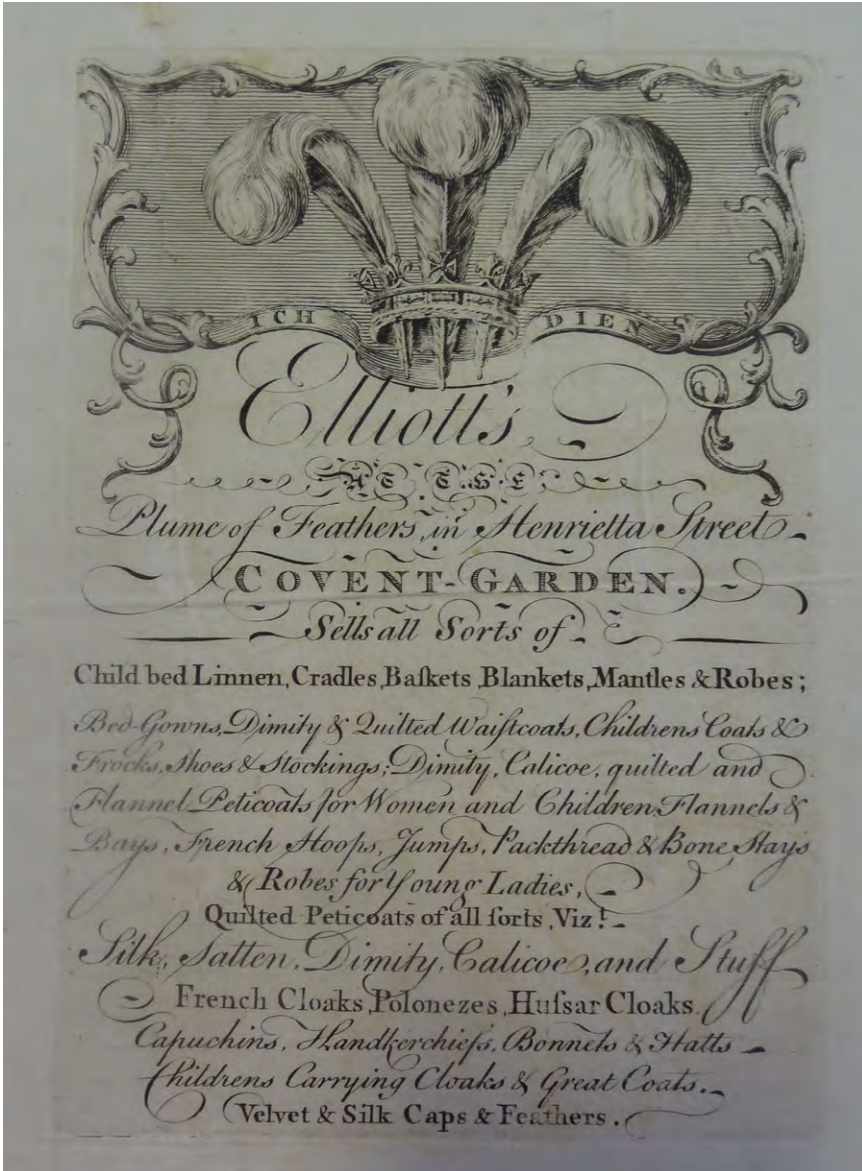 ICH DIEN
Elliott's
AT THE
Plume of Feathers, in Henrietta Street
COVENT-GARDEN.
Sells all Sorts of
Child bed Linnen, Cradles, Baſkets, Blankets, Mantles & Robes;
Bed-Gowns, Dimity & Quilted Waiſtcoats, Childrens Coats &
Frocks, Shoes & Stockings; Dimity, Calicoe, quilted and
Flannel Peticoats for Women and Children, Flannels &
Bays, French Hoops, Jumps, Packthread & Bone Stays
& Robes for Young Ladies,
Quilted Peticoats of all ſorts, Viz!
Silk, Satten, Dimity, Calicoe, and Stuff
French Cloaks, Polonezes, Huſsar Cloaks.
Capuchins, Handkerchiefs, Bonnets & Hatts
Childrens Carrying Cloaks & Great Coats.
Velvet & Silk Caps & Feathers.